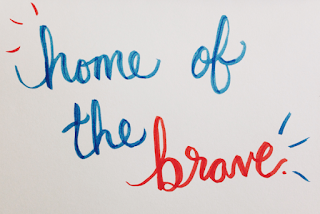 home of
the brave.